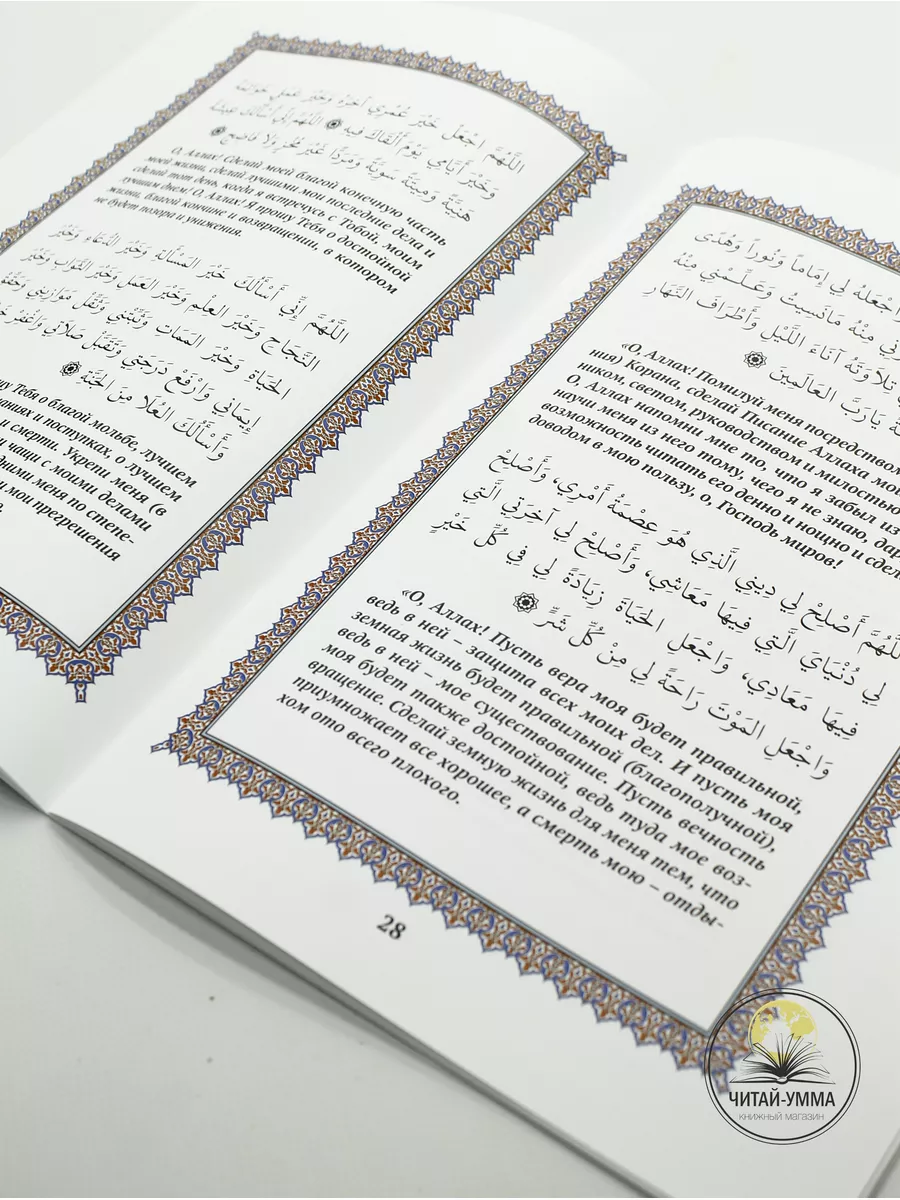 اللَّهُمَّ اجْعَلْ خَيْرَ عُمْرِي آخِرَهُ وَخَيْرَ عَمَلِي خَوَاتِمَهُ
وَخَيْرَ أَيَّامِي يَوْمَ أَلْقَاكَ فِيهِ ۞ اللَّهُمَّ إِنِّي أَسْأَلُكَ عِيشَةً
هَنِيَّةً وَمِيتَةً سَوِيَّةً وَمَرَدًّا غَيْرَ مُخْزٍ وَلَا فَاضِحٍ ۞
О, Аллах! Сделай моей благой конечную часть
моей жизни, сделай лучшими мои последние дела и
сделай тот день, когда я встречусь с Тобой, моим
лучшим днем! О, Аллах! Я прошу Тебя о достойной
жизни, благой кончине и возвращении, в котором
не будет позора и унижения.
اللَّهُمَّ إِنِّي أَسْأَلُكَ خَيْرَ الْمَسْأَلَةِ وَخَيْرَ الدُّعَاءِ وَخَيْرَ
النَّجَاحِ وَخَيْرَ الْعِلْمِ وَخَيْرَ الْعَمَلِ وَخَيْرَ الثَّوَابِ وَخَيْرَ
الْحَيَاةِ وَخَيْرَ الْمَمَاتِ وَثَبِّتْنِي وَثَقِّلْ مَوَازِينِي وَحَقِّقْ
إِيمَانِي وَارْفَعْ دَرَجَتِي وَتَقَبَّلْ صَلَاتِي وَاغْفِرْ
وَأَسْأَلُكَ الْعُلَا مِنَ الْجَنَّةِ ۞
Тебя о благой мольбе, лучшем
и поступках, о лучшем
и смерти. Укрепи меня (в
чаши с моими делами
меня по степе-
и мои прегрешения
وَاجْعَلْهُ لِي إِمَاماً وَنُوراً وَهُدًى
مِنْهُ مَانَسِيتُ وَعَلِّمْنِي مِنْهُ
تِلَاوَتَهُ آنَاءَ اللَّيْلِ وَأَطْرَافَ النَّهَارِ
يَارَبَّ الْعَالَمِينَ ۞
«О, Аллах! Помилуй меня посредством
ния) Корана, сделай Писание Аллаха мои
ником, светом, руководством и милостью
О, Аллах напомни мне то, что я забыл из
научи меня из него тому, чего я не знаю, дар
возможность читать его денно и нощно и сдел
доводом в мою пользу, о, Господь миров!
اللَّهُمَّ أَصْلِحْ لِي دِينِي الَّذِي هُوَ عِصْمَةُ أَمْرِي، وَأَصْلِحْ
لِي دُنْيَايَ الَّتِي فِيهَا مَعَاشِي، وَأَصْلِحْ لِي آخِرَتِي الَّتِي
فِيهَا مَعَادِي، وَاجْعَلِ الْحَيَاةَ زِيَادَةً لِي فِي كُلِّ خَيْرٍ
وَاجْعَلِ الْمَوْتَ رَاحَةً لِي مِنْ كُلِّ شَرٍّ ۞
«О, Аллах! Пусть вера моя будет правильной,
ведь в ней – защита всех моих дел. И пусть моя
земная жизнь будет правильной (благополучной),
ведь в ней – мое существование. Пусть вечность
моя будет также достойной, ведь туда мое воз-
вращение. Сделай земную жизнь для меня тем, что
приумножает все хорошее, а смерть мою – отды-
хом ото всего плохого.
28
ЧИТАЙ-УММА
КНИЖНЫЙ МАГАЗИН